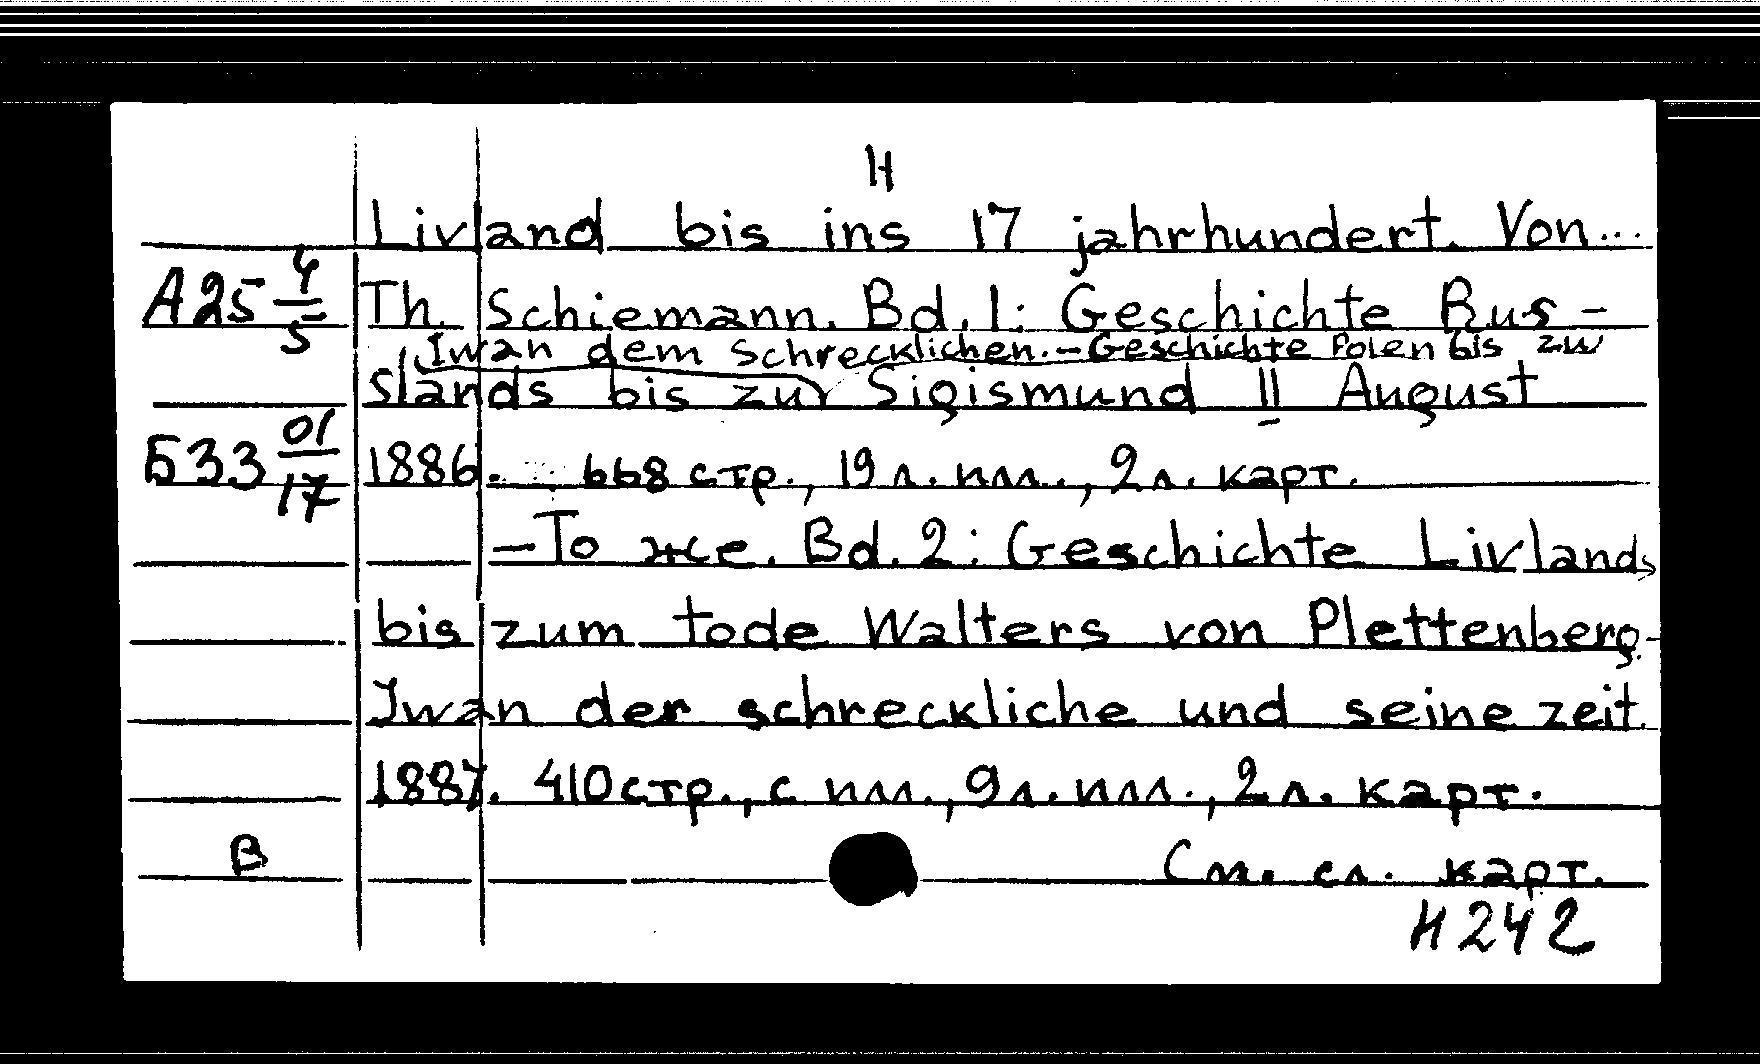 Н
Livland bis ins 17 jahrhundert. Von...
А25 4/5 Th. Schiemann. Bd. 1: Geschichte Rus-
Iwan dem Schrecklichen. - Geschichte Polen bis zu
slands bis zu Sigismund II August
Б33 01/17 1886. 668 стр., 19 л. илл., 2 л. карт.
- То же. Bd. 2: Geschichte Livlands
bis zum tode Walters von Plettenberg. -
Iwan der schreckliche und seine zeit.
1887. 410 стр., с илл., 9 л. илл., 2 л. карт.
В См. сл. карт.
Н242